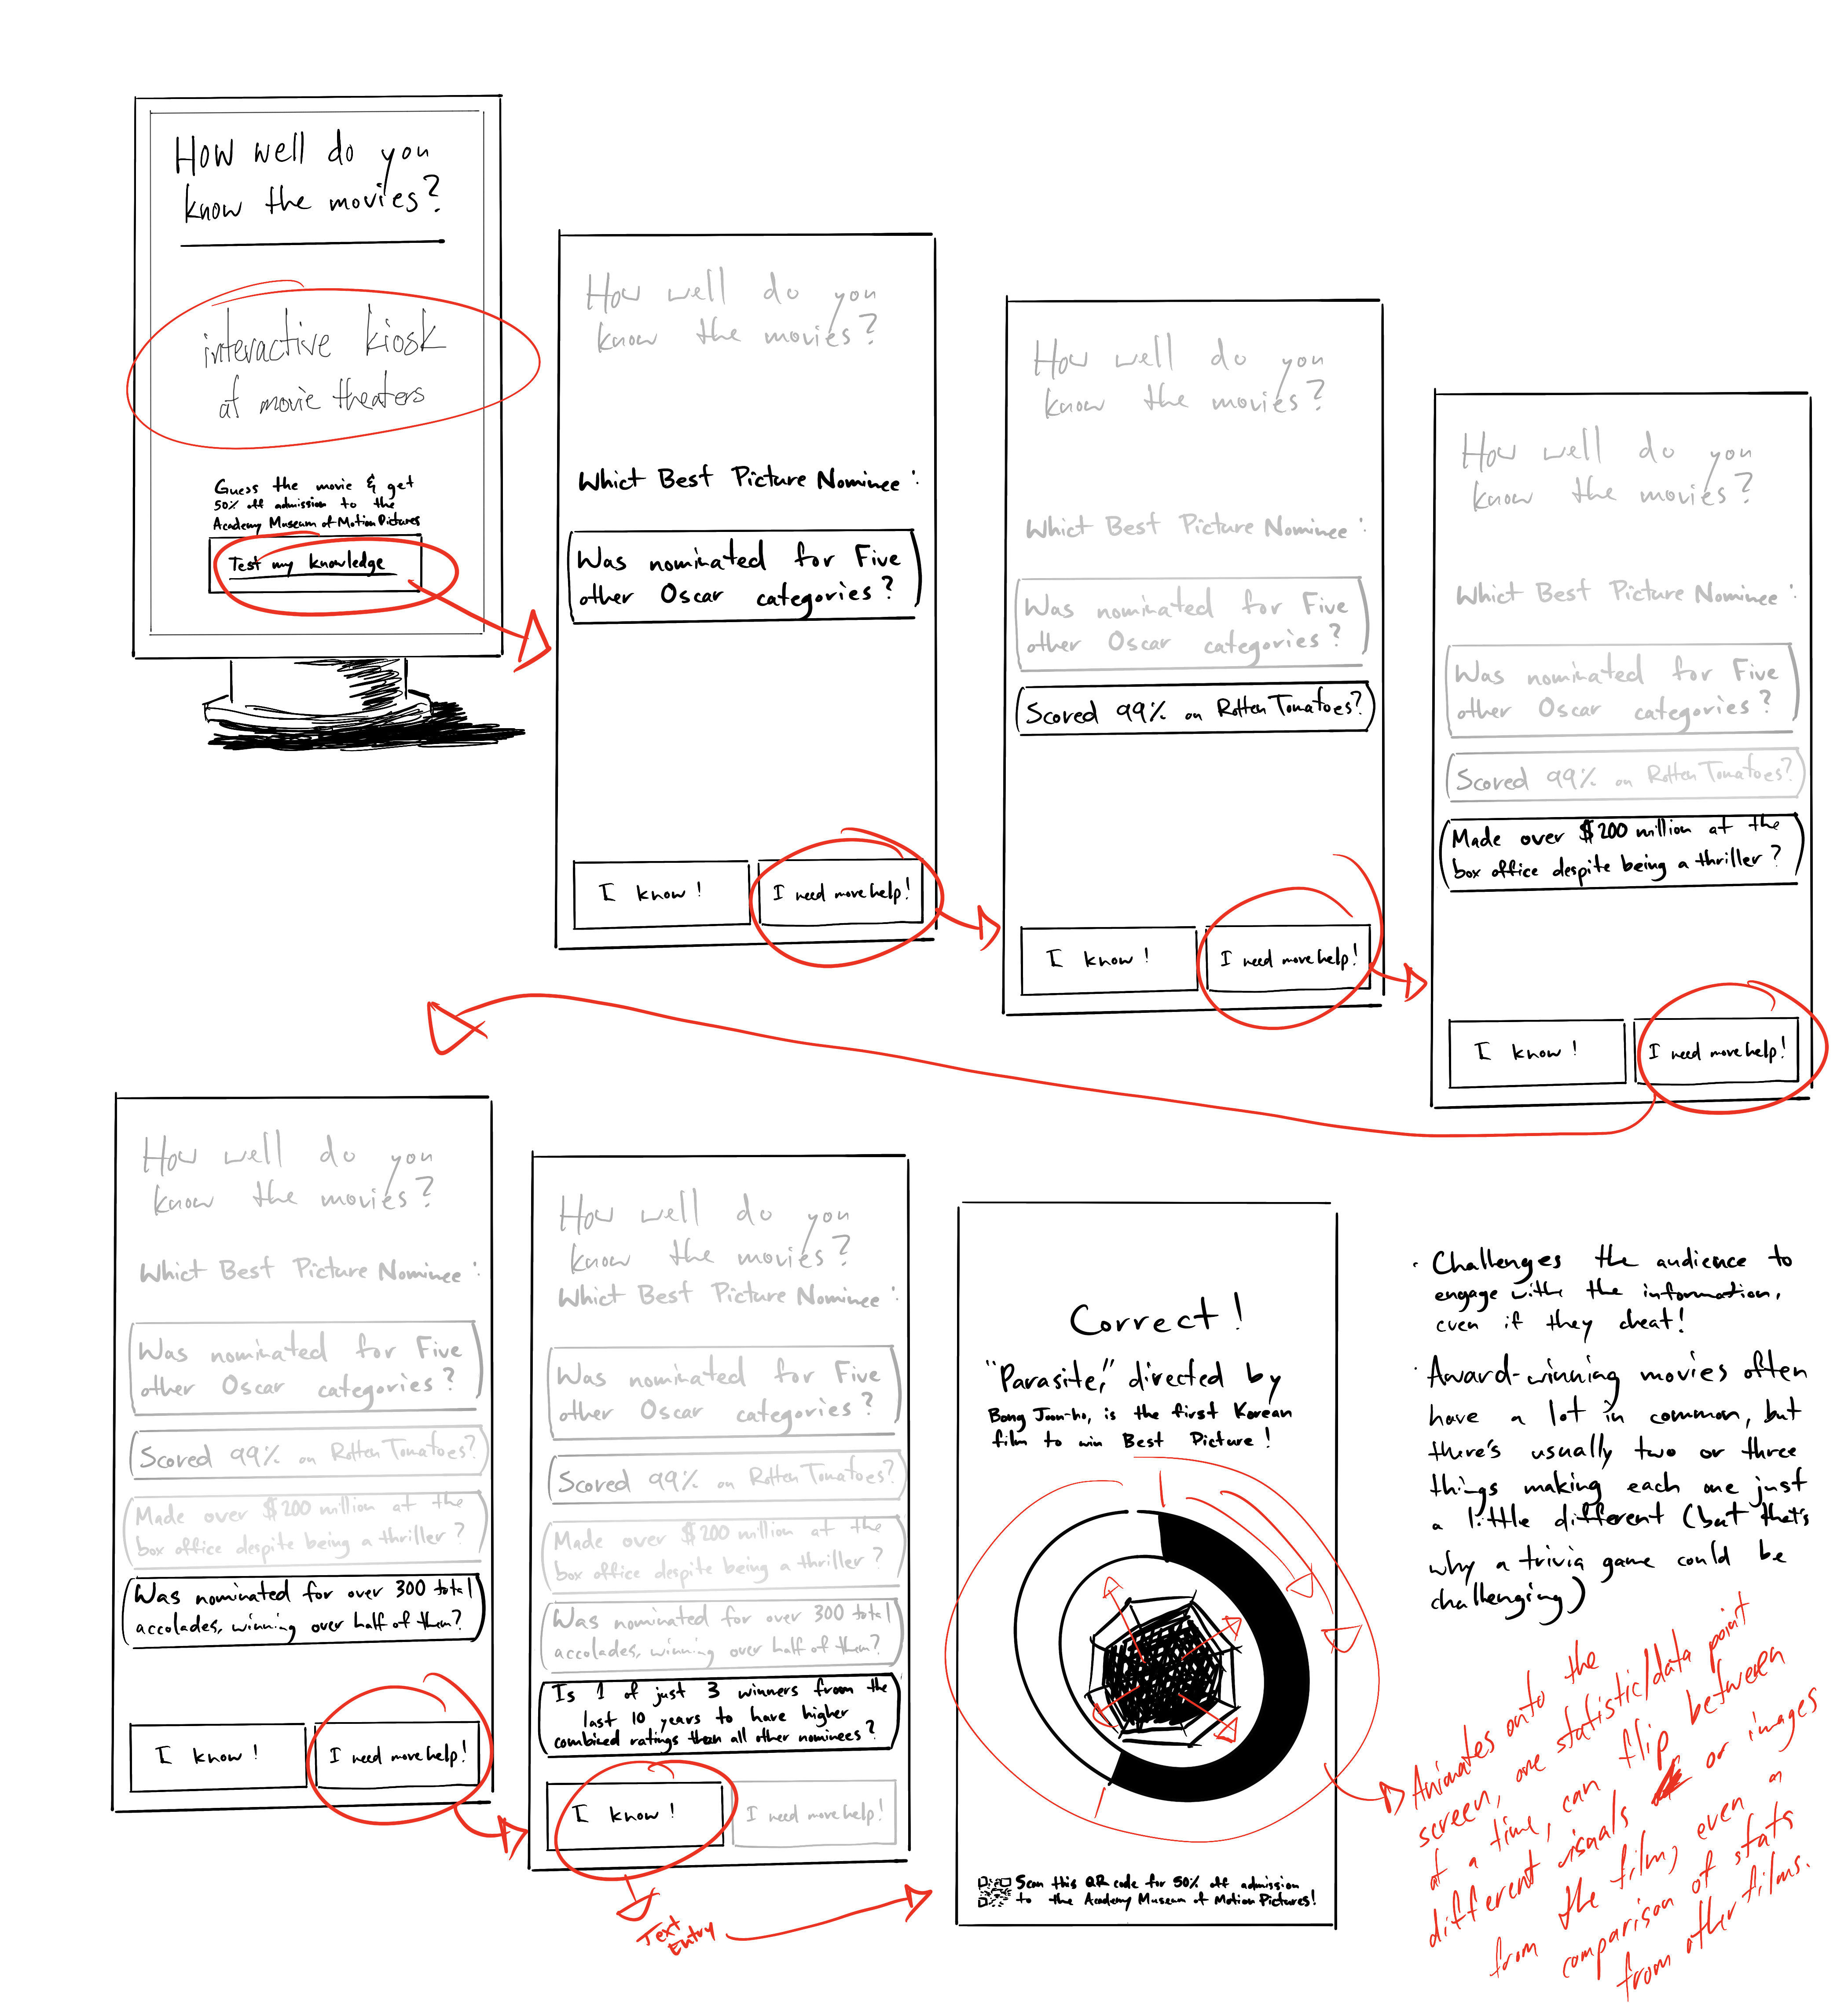 How well do you
know the movies?
interactive kiosk
at movie theaters
Guess the movie & get
50% off admission to the
Academy Museum of Motion Pictures
Test my knowledge
How well do you
know the movies?
Whict Best Picture Nominee:
Was nominated for Five
other Oscar categories?
I know!
I need more help!
How well do you
know the movies?
Whict Best Picture Nominee:
Was nominated for Five
other Oscar categories?
Scored 99% on Rotten Tomatoes?
I know!
I need more help!
How well do you
know the movies?
Whict Best Picture Nominee:
Was nominated for Five
other Oscar categories?
Scored 99% on Rotten Tomatoes?
Made over $200 million at the
box office despite being a thriller?
I know!
I need more help!
How well do you
know the movies?
Whict Best Picture Nominee:
Was nominated for Five
other Oscar categories?
Scored 99% on Rotten Tomatoes?
Made over $200 million at the
box office despite being a thriller?
Was nominated for over 300 total
accolades, winning over half of them?
I know!
I need more help!
How well do you
know the movies?
Whict Best Picture Nominee:
Was nominated for Five
other Oscar categories?
Scored 99% on Rotten Tomatoes?
Made over $200 million at the
box office despite being a thriller?
Was nominated for over 300 total
accolades, winning over half of them?
Is 1 of just 3 winners from the
last 10 years to have higher
combined ratings than all other nominees?
I know!
I need more help!
Text
Entry
Correct!
"Parasite," directed by
Bong Joon-ho, is the first Korean
film to win Best Picture!
Scan this QR code for 50% off admission
to the Academy Museum of Motion Pictures!
· Challenges the audience to
engage with the information,
even if they cheat!
· Award-winning movies often
have a lot in common, but
there's usually two or three
things making each one just
a little different (but that's
why a trivia game could be
challenging)
Animates onto the
screen, one statistic/data point
at a time, can flip between
different visuals or images
from the film, even a
comparison of stats
from other films.